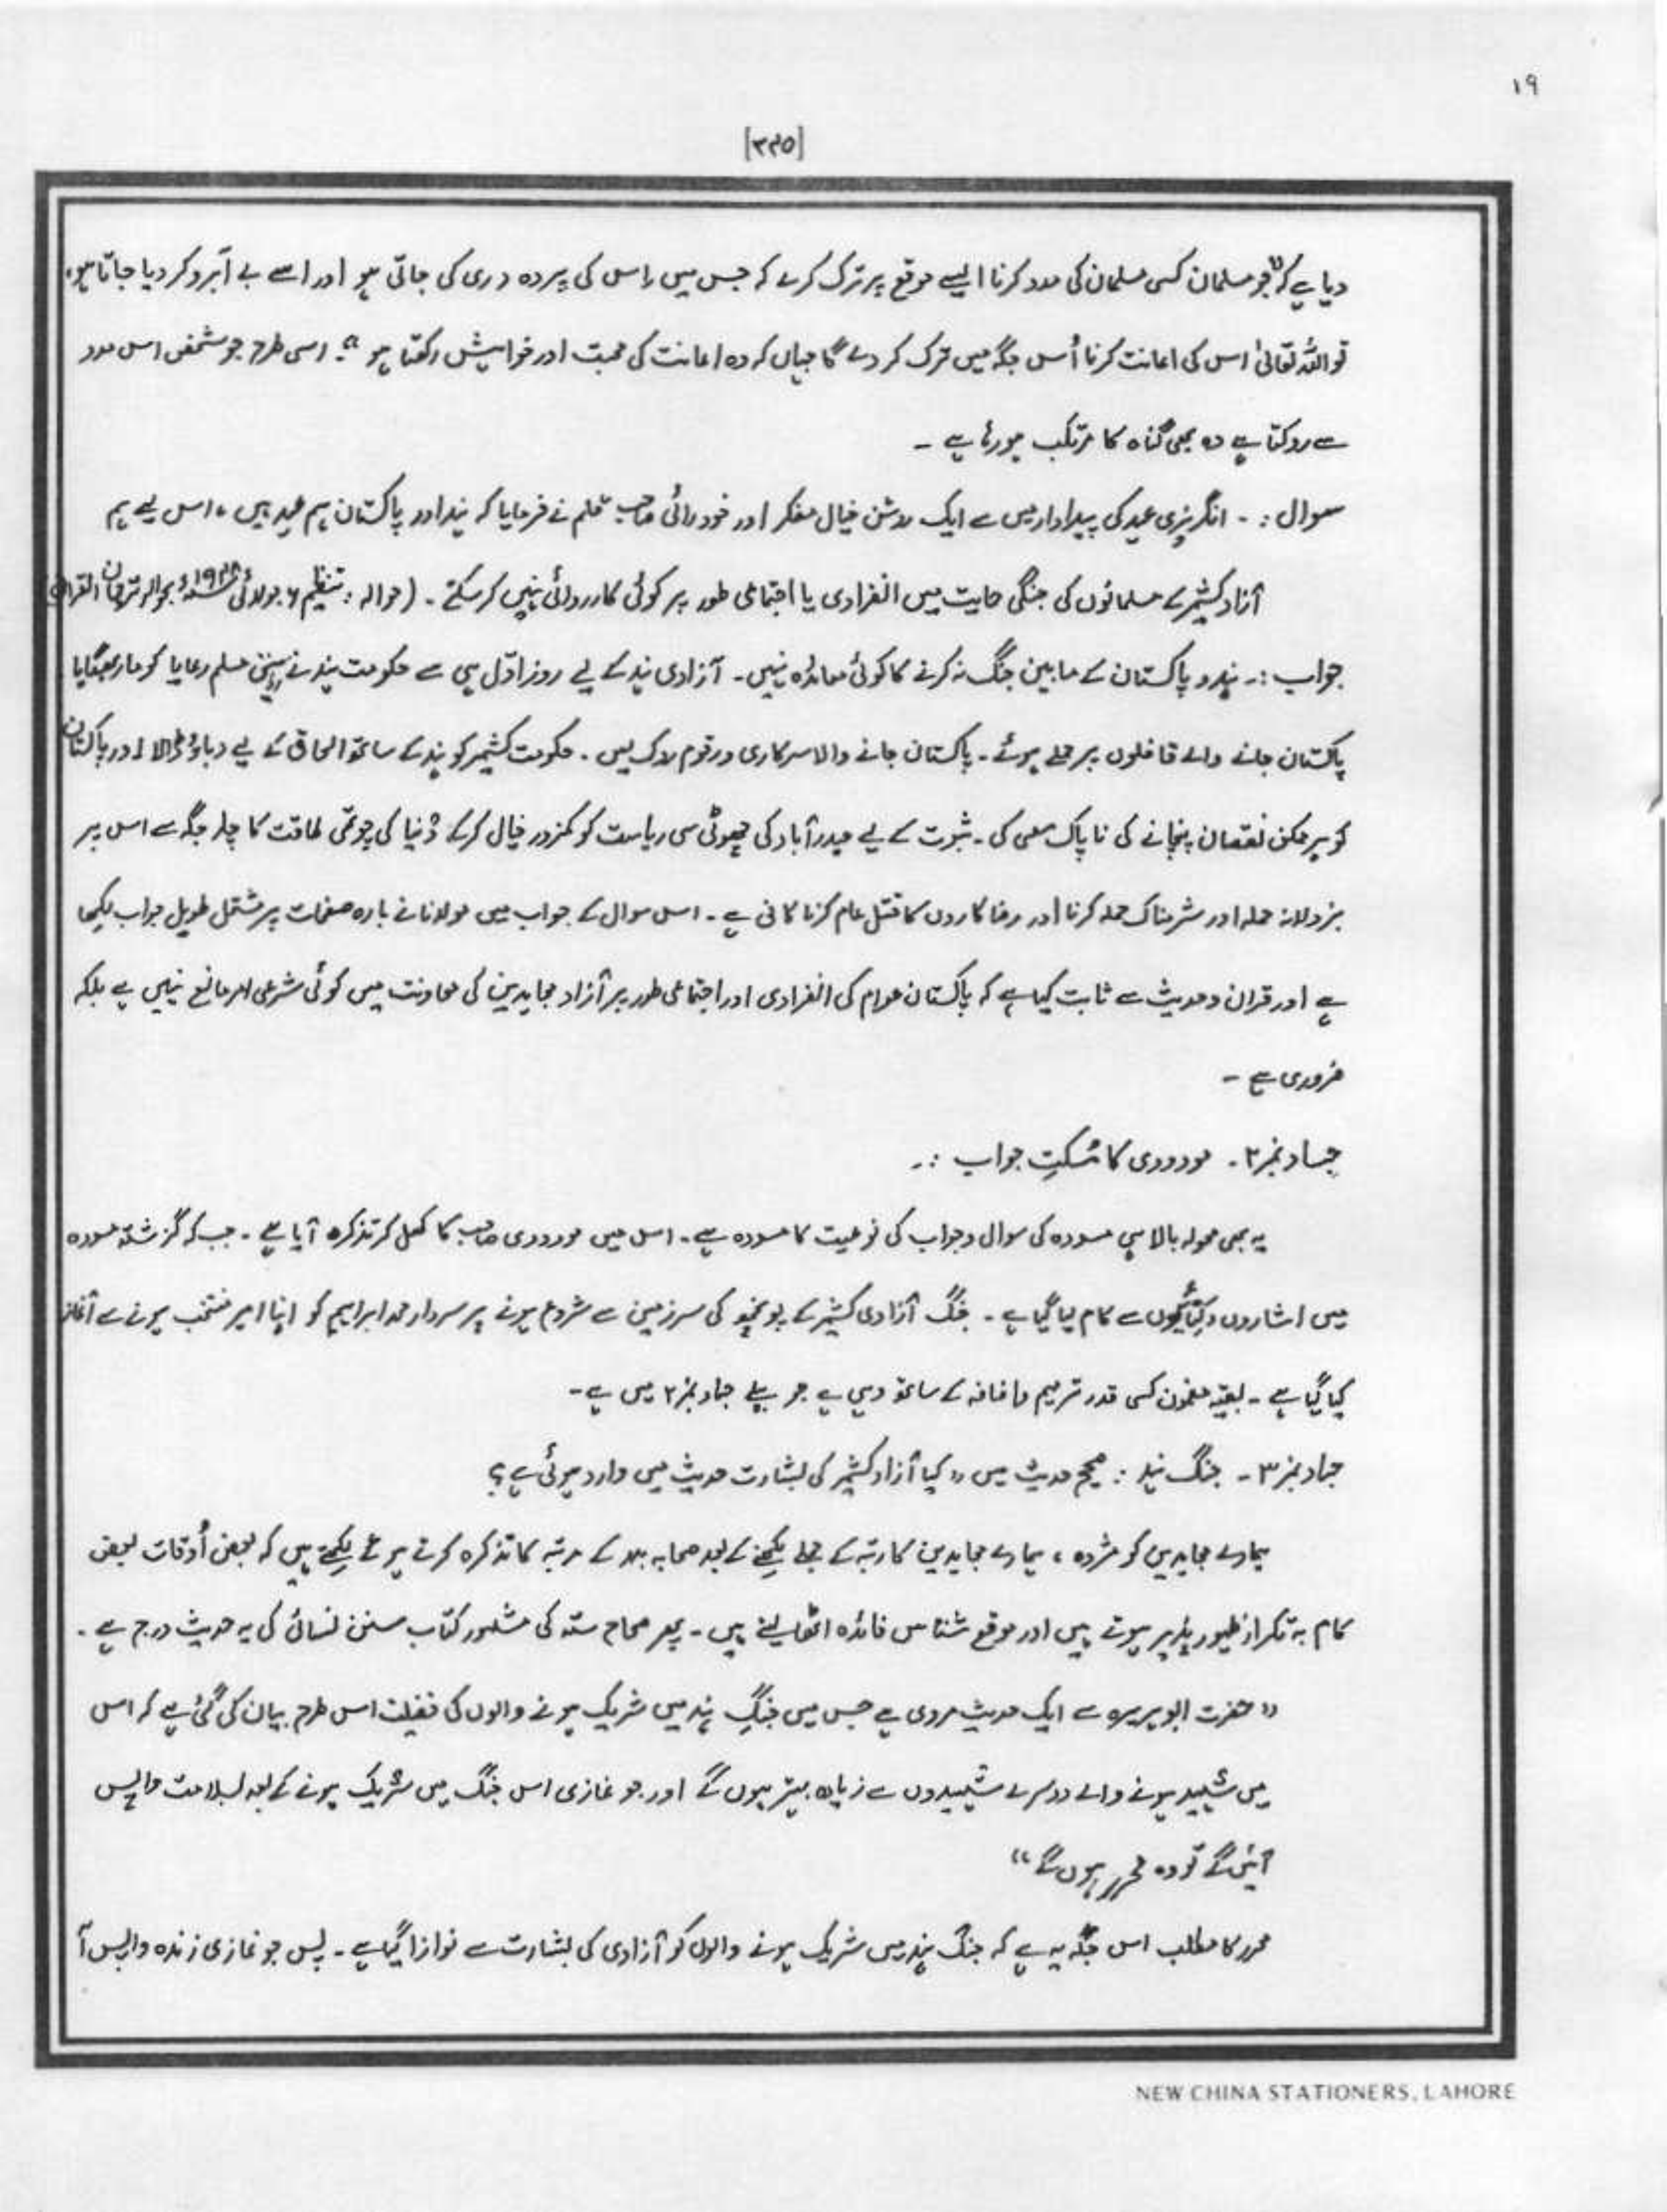 ۱۹
[۳۴۵]
دیا ہے کہ "جو مسلمان کسی مسلمان کی مدد کرنا ایسے موقع پر ترک کرے کہ جس میں اس کی پردہ دری کی جاتی ہو اور اسے بے آبرو کر دیا جاتا ہو،
تو اللہ تعالیٰ اس کی اعانت کرنا اُس جگہ میں ترک کر دے گا جہاں کہ وہ اعانت کی محبت اور خواہش رکھتا ہو"۔ اسی طرح جو شخص اس مدد
سے روکتا ہے وہ بھی گناہ کا مرتکب ہو رہا ہے ۔
سوال :۔ انگریزی عہد کی پیداوار میں سے ایک روشن خیال مفکر اور خود رائی صاحب قلم نے فرمایا کہ ہند اور پاکستان ہم عہد ہیں، اس لیے ہم
آزاد کشمیر کے مسلمانوں کی جنگی حمایت میں انفرادی یا اجتماعی طور پر کوئی کارروائی نہیں کر سکتے ۔ (حوالہ : تنظیم ۶ جولائی ۱۹۴۸ء بحوالہ ترجمان القرآن)
جواب :۔ ہند و پاکستان کے مابین جنگ نہ کرنے کا کوئی معاہدہ نہیں ۔ آزادی ہند کے لیے روز اوّل ہی سے حکومت ہند نے اپنی مسلم رعایا کو مار بھگایا
پاکستان جانے والے قافلوں پر حملے ہوئے ۔ پاکستان جانے والا سرکاری ورقوم روک لیں ۔ حکومت کشمیر کو ہند کے ساتھ الحاق کے لیے دباؤ ڈالا اور پاکستان
کو ہر ممکن نقصان پہنچانے کی ناپاک سعی کی ۔ ثبوت کے لیے حیدرآباد کی چھوٹی سی ریاست کو کمزور خیال کرکے دُنیا کی چوتھی طاقت کا چار جگہ سے اس پر
بزدلانہ حملہ اور شرمناک حملہ کرنا اور رضا کاروں کا قتل عام کرنا کافی ہے ۔ اس سوال کے جواب میں مولانا نے بارہ صفحات پر مشتمل طویل جواب لکھا
ہے اور قرآن و حدیث سے ثابت کیا ہے کہ پاکستان عوام کی انفرادی اور اجتماعی طور پر آزاد مجاہدین کی معاونت میں کوئی شرعی امر مانع نہیں ہے بلکہ
ضروری ہے ۔
جہاد نمبر ۲ ۔ مودودی کا مُسکت جواب :۔
یہ بھی محولہ بالا ہی مسودہ کی سوال و جواب کی نوعیت کا مسودہ ہے ۔ اس میں مودودی صاحب کا کھل کر تذکرہ آیا ہے ۔ جب کہ گزشتہ مسودہ
میں اشاروں و کنایوں سے کام لیا گیا ہے ۔ جنگ آزادی کشمیر کے پونچھ کی سرزمین سے شروع ہونے پر سردار محمد ابراہیم کو اپنا امیر منتخب ہونے سے آغاز
کیا گیا ہے ۔ بقیہ مضمون کسی قدر ترمیم و اضافہ کے ساتھ وہی ہے جو پہلے جہاد نمبر ۲ میں ہے ۔
جہاد نمبر ۳ ۔ جنگ ہند : صحیح حدیث میں " کیا آزاد کشمیر کی بشارت حدیث میں وارد ہوئی ہے؟
ہمارے مجاہدین کو مژدہ ، ہمارے مجاہدین کا رتبہ کے جملے لکھنے کے بعد صحابہ بدر کے مرتبہ کا تذکرہ کرتے ہوئے لکھتے ہیں کہ بعض اُوقات بعض
کام بہ تکرار ظہور پذیر ہوتے ہیں اور موقع شناس فائدہ اٹھا لیتے ہیں ۔ پھر صحاح ستہ کی مشہور کتاب سنن نسائی کی یہ حدیث درج ہے ۔
" حضرت ابوہریرہ سے ایک حدیث مروی ہے جس میں جنگِ ہند میں شریک ہونے والوں کی فضیلت اس طرح بیان کی گئی ہے کہ اس
میں شہید ہونے والے دوسرے شہیدوں سے زیادہ بہتر ہوں گے اور جو غازی اس جنگ میں شریک ہونے کے بعد بسلامت واپس
آئیں گے تو وہ محرر ہوں گے "
محرر کا مطلب اس جگہ یہ ہے کہ جنگ ہند میں شریک ہونے والوں کو آزادی کی بشارت سے نوازا گیا ہے ۔ پس جو غازی زندہ واپس آ
NEW CHINA STATIONERS, LAHORE